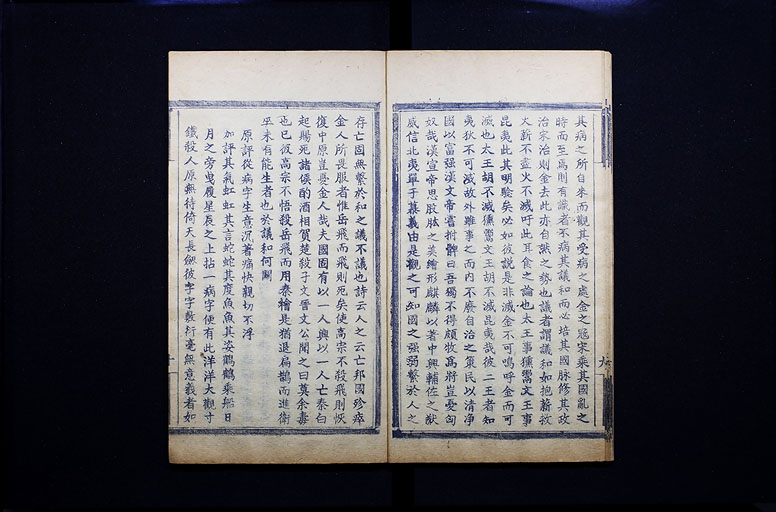 其病之所自來而觀其受病之處金之寇宋乘其國亂之
時而至焉則有識者不病其議和而必培其國脉修其政
治宋治則金去此亦自然之勢也識者謂議和如抱薪救
火薪不盡火不滅吁此耳食之論也太王事獯鬻文王事
昆夷此其明驗矣必如彼說是非滅金不可嗚呼金而可
滅也太王胡不滅獯鬻文王胡不滅昆夷哉彼二王者知
夷狄不可滅故外雖事之而内不廢自治之策民以清净
國以富强漢文帝嘗拊髀曰吾獨不得頗牧爲將豈憂匈
奴哉漢宣帝思股肱之美繪形麒麟以著中興輔佐之猷
威信北夷單于慕義由是觀之可知國之强弱繫於人之
存亡固無繫於和之議不議也詩云人之云亡邦國殄瘁
金人所畏服者惟岳飛而飛則死矣使高宗不殺飛則恢
復中原豈憂金人哉夫國固有以一人興以一人亡秦白
起賜死諸侯酌酒相賀楚殺子文晉文公聞之曰莫余毒
也已彼高宗不悟殺岳飛而用秦檜是猶退扁鵲而進衛
平未有能生者也於議和何關
原評從病字生意沉著痛快親切不浮
加評其氣虹虹其言蛇蛇其度魚魚其姿鶴鶴乘船日
月之旁曳履星辰之上拈一病字便有此洋洋大觀寸
鐵殺人原無待倚天長劍彼字字數行毫無意義者如